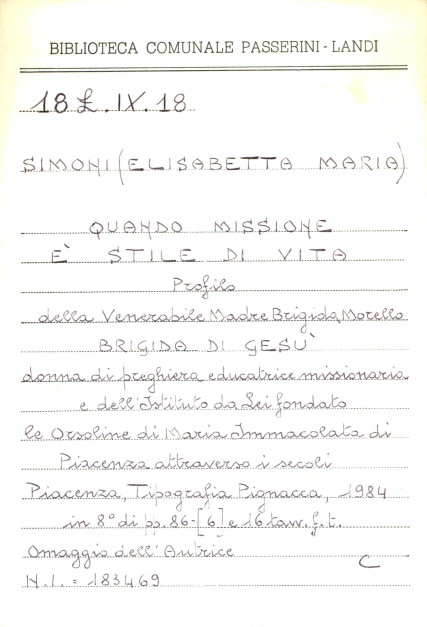 BIBLIOTECA COMUNALE PASSERINI-LANDI
18 £. IX. 18
SIMONI (ELISABETTA MARIA)
QUANDO MISSIONE
È STILE DI VITA
Profilo
della Venerabile Madre Brigida Morello
BRIGIDA DI GESÙ
donna di preghiera educatrice missionaria
e dell'Istituto da Lei fondato
le Orsoline di Maria Immacolata di
Piacenza attraverso i secoli
Piacenza, Tipografia Pignacca, 1984
in 8° di pp. 86-[6] e 16 tav. f. t.
Omaggio dell'Autrice
C
N.I. = 183469